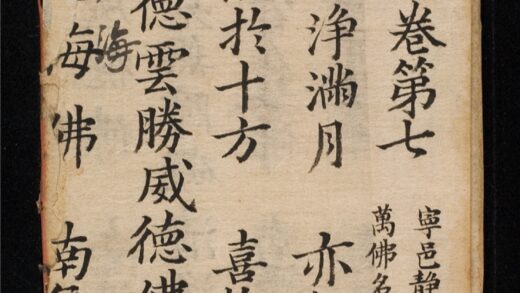 卷第七
寧邑静
萬佛名
浄滿月 亦
扵十方 喜
德雲勝威德佛
海
海佛 南